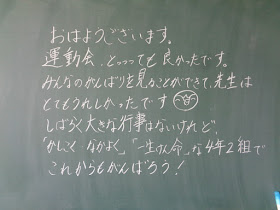 おはようございます。
運動会、とっっっても良かったです。
みんなのがんばりを見ることができて、先生は
とてもうれしかったです
しばらく大きな行事はないけれど、
「かしこく・なかよく」「一生けん命」な4年2組で
これからもがんばろう!